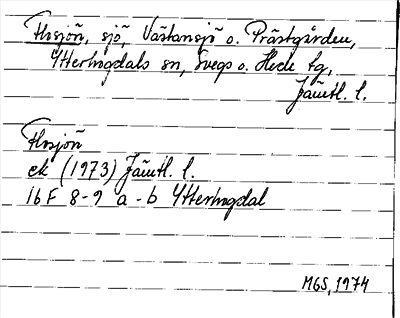 Flosjön, sjö, Västansjö o. Prästgården,
Ytterhogdals sn, Svegs o. Hede tg,
Jämtl. l.
Flosjön
ek (1973) Jämtl. l.
16 F 8-9 a-b Ytterhogdal
MGS, 1974